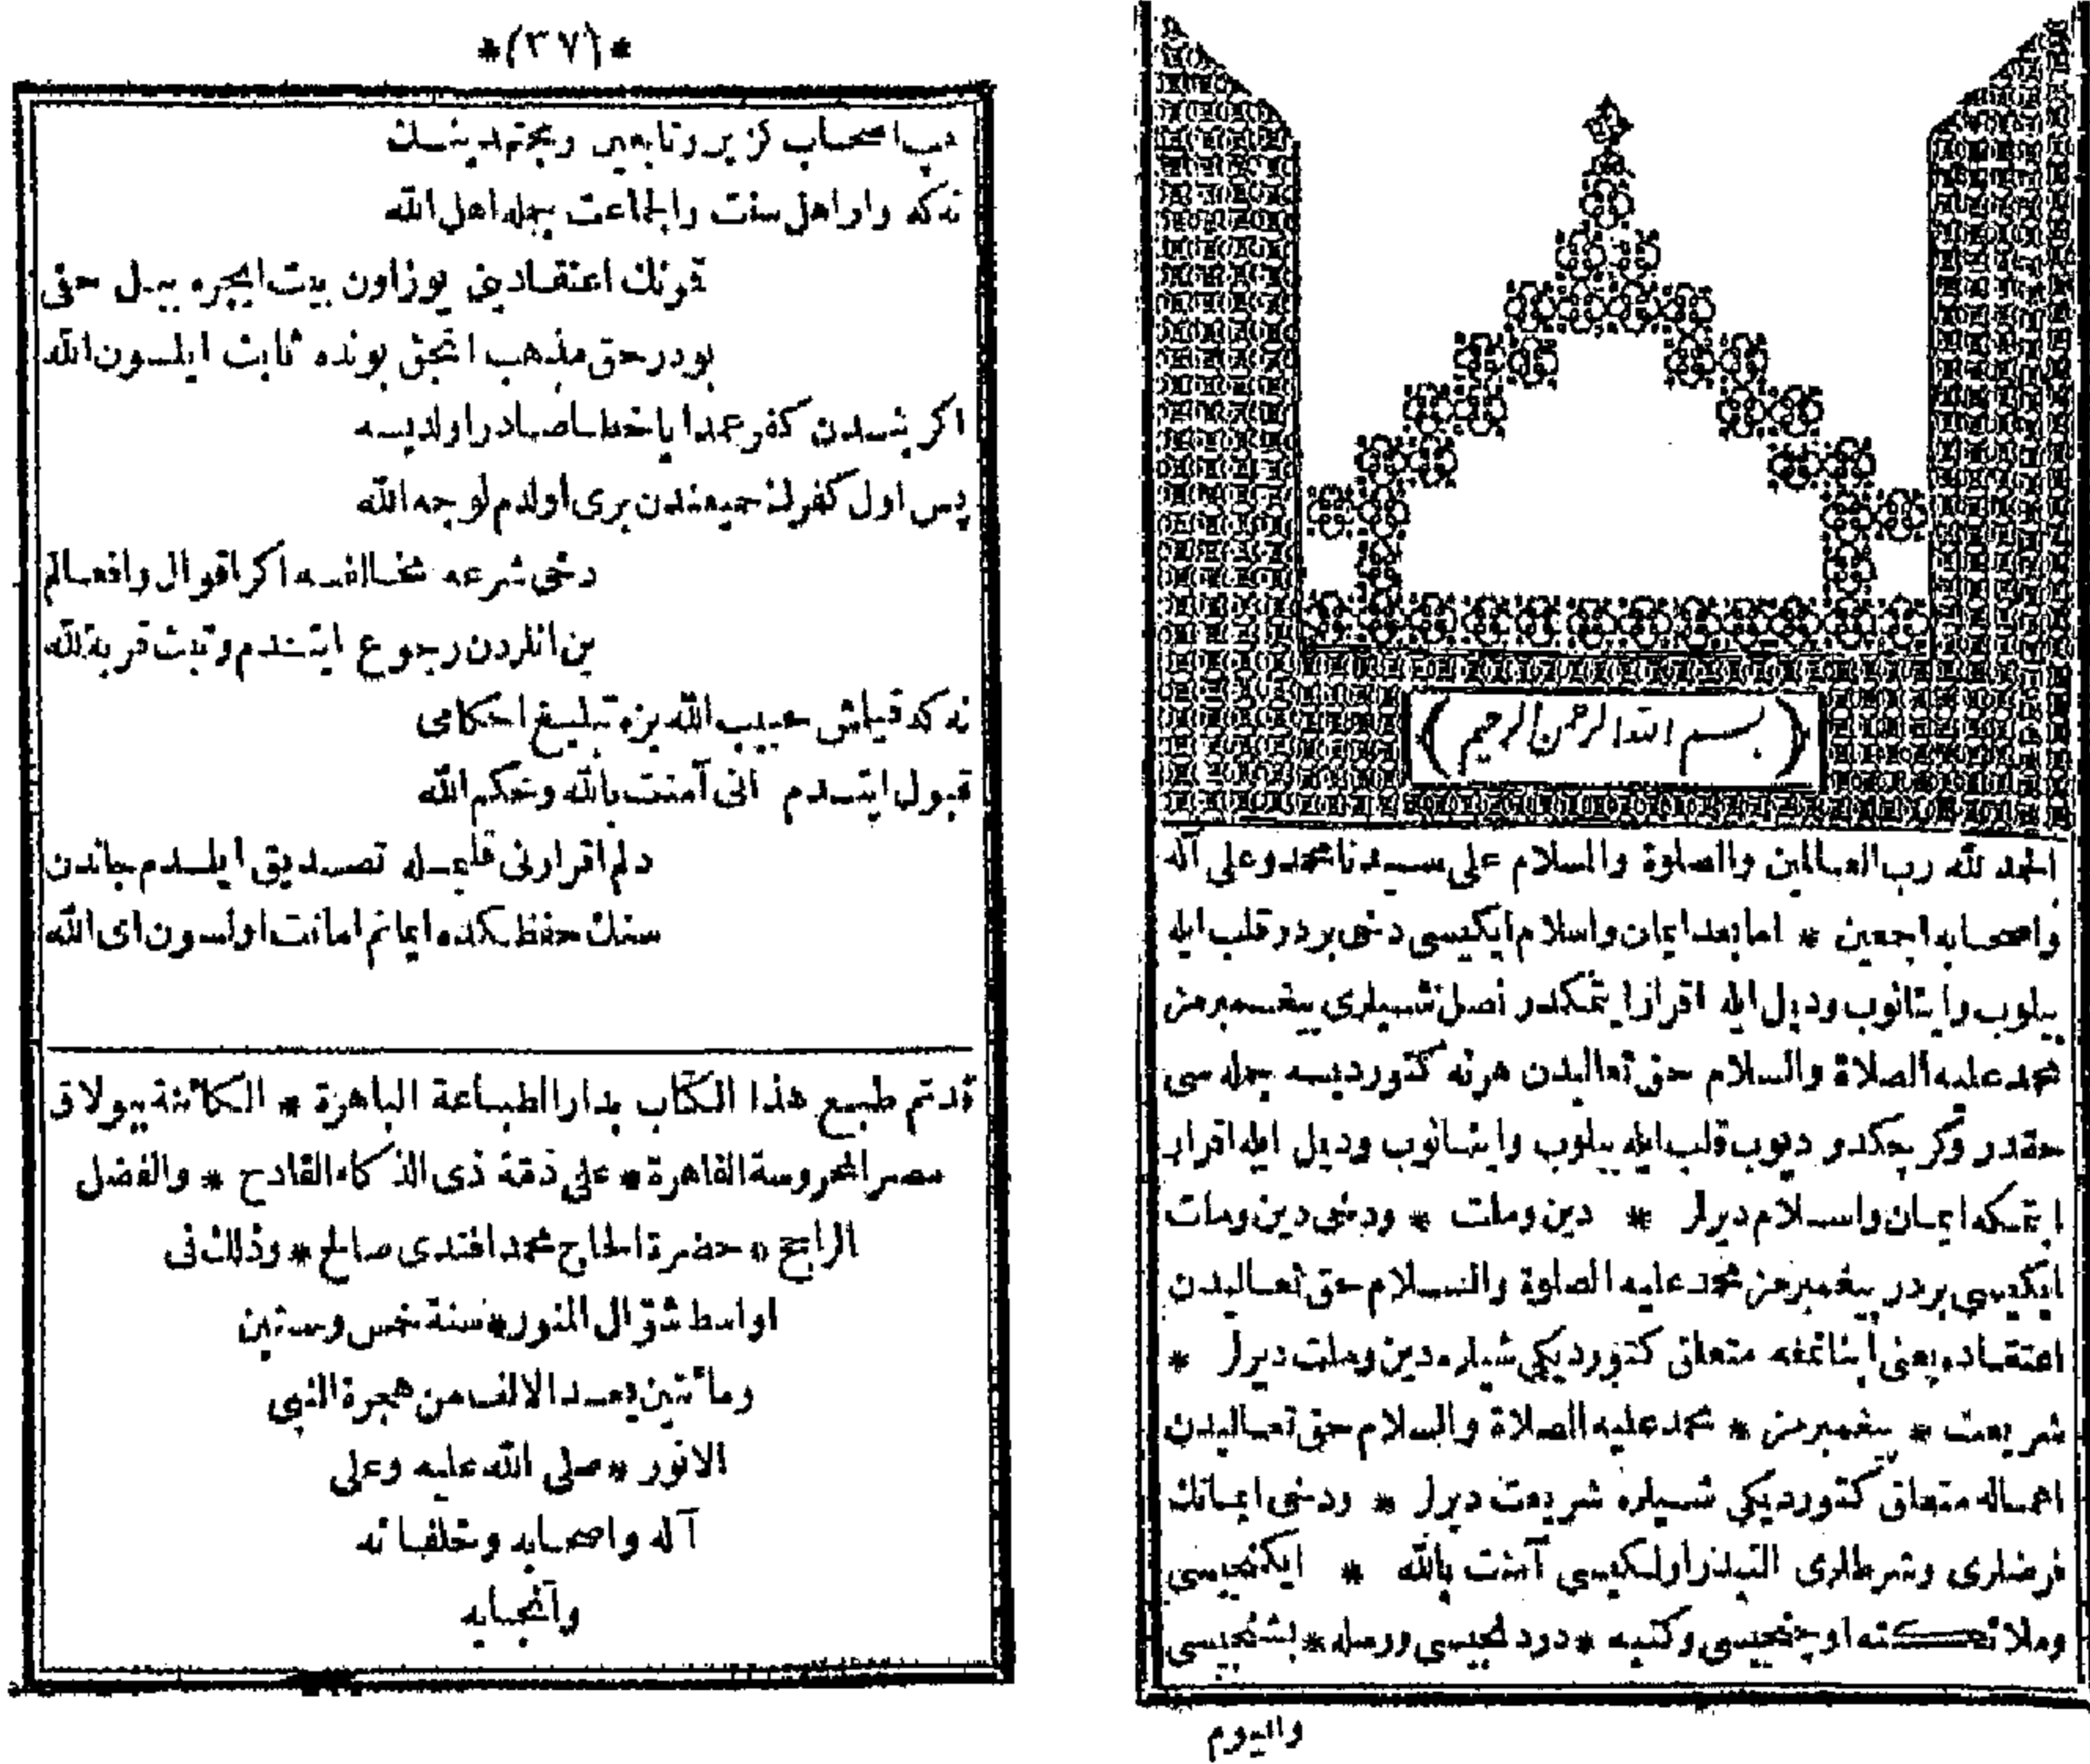 بسم الله الرحمن الرحيم
الحمد لله رب العالمين والصلوة والسلام على سيدنا محمد وعلى آله
واصحابه اجمعين * اما بعد ايمان واسلام ايكيسى دخى بردر قلب ايله
بيلوب واينانوب وديل ايله اقرار ايتمكدر نصل شيلرى پيغمبرمز
محمد عليه الصلاة والسلام حق تعاليدن هر نه كتورديسه جمله سى
حقدر وكرچكدر ديوب قلب ايله بيلوب واينانوب وديل ايله اقرار
ايتمكه ايمان واسلام ديرلر * دين وملت * ودخى دين وملت
ايكيسى بردر پيغمبرمز محمد عليه الصلوة والسلام حق تعاليدن
اعتقاده يعنى اينانمغه متعلق كتورديكى شيلره دين وملت ديرلر *
شريعت * پيغمبرمز * محمد عليه الصلاة والسلام حق تعاليدن
اعماله متعلق كتورديكى شيلره شريعت ديرلر * ودخى ايمانك
فرضلرى وشرطلرى التيدر اولكيسى آمنت بالله * ايكنجيسى
وملائكته اوچنجيسى وكتبه * دردنجيسى ورسله * بشنجيسى
واليوم
*(٣٧)*
اصحاب كزين وتابعين ومجتهدينك
نه كه وار اهل سنت والجماعت جمله اهل الله
قونك اعتقادينى يوز اون بيت ايچره بيل حقى
بودر حق مذهب انجق بونده ثابت ايلسون الله
اكر بندن كفر عمدا يا خطا صادر اولديسه
پس اول كفرك جميعندن برى اولدم لوجه الله
دخى شرعه مخالفسه اكر اقوال وافعالم
بن انلردن رجوع ايتدم وتبت قربة لله
نه كه قيلمش حبيب الله بزه تبليغ احكامى
قبول ايتدم انى آمنت بالله وحكم الله
دلم اقرارنى قلبمله تصديق ايلدم جاندن
سنك حفظكده ايمانم امانت اولسون اى الله
قد تم طبع هذا الكتاب بدار الطباعة الباهرة * الكائنة ببولاق
مصر المحروسة القاهرة * على ذمة ذى الذكاء القادح * والفضل
الراجح * حضرة الحاج محمد افندى صالح * وذلك فى
اواسط شوال المنور * سنة خمس وستين
ومائتين بعد الالف من هجرة النبى
الانور * صلى الله عليه وعلى
آله واصحابه وخلفائه
وانجابه